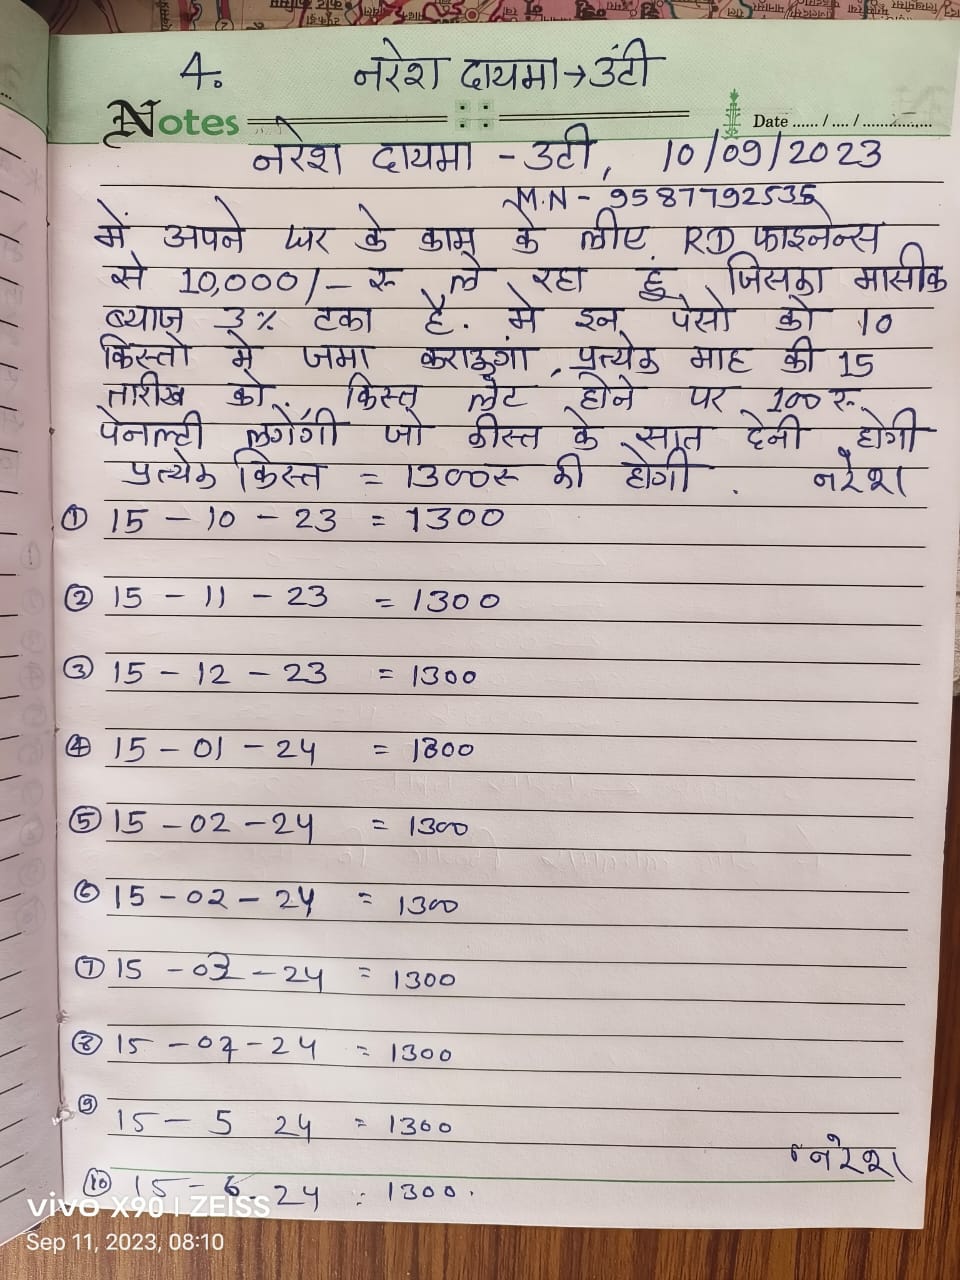 4. नरेश दायमा → उंटी
Notes
Date ...... / .... / ..............
नरेश दायमा - उटी, 10/09/2023
M.N - 9587792535
में अपने घर के काम के लीए RD फाइनेन्स
से 10,000/- रु ले रहा हुं जिसका मासीक
ब्याज 3% टका है. मे इन पेसो को 10
किस्तो मे जमा कराऊगां, प्रत्येक माह की 15
तारीख को. किस्त लेट होने पर 100 रु.
पेनल्टी लगेगी जो कीस्त के सात देनी होगी
प्रत्येक किस्त = 1300रु की होगी . नरेश
① 15 - 10 - 23 = 1300
② 15 - 11 - 23 = 1300
③ 15 - 12 - 23 = 1300
④ 15 - 01 - 24 = 1300
⑤ 15 - 02 - 24 = 1300
⑥ 15 - 02 - 24 = 1300
⑦ 15 - 03 - 24 = 1300
⑧ 15 - 04 - 24 = 1300
⑨ 15 - 5 24 = 1300
नरेश
⑩ 15 - 6 - 24 = 1300.
vivo X90 | ZEISS
Sep 11, 2023, 08:10